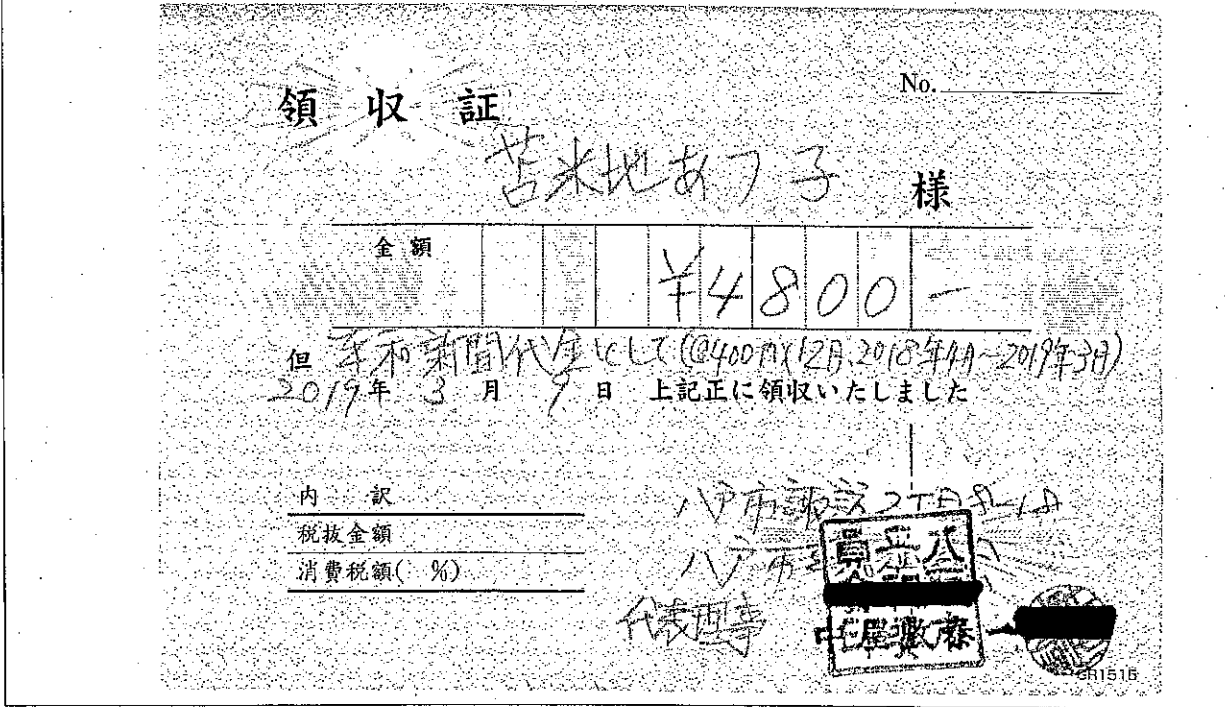 No.
領収証
苫米地あつ子 様
金額 ¥4800-
但 平和新聞代金として(@400円×12月、2018年4月~2019年3月)
2019年3月9日 上記正に領収いたしました
内訳
税抜金額
消費税額( %)
八戸市諏訪2丁目
八戸市
代表理事